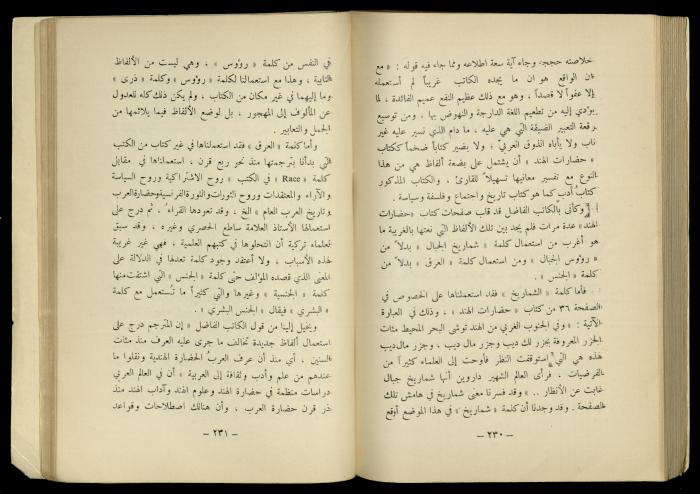 خلاصته حججه وجاء آية سعة اطلاعه ومما جاء فيه قوله : « مع
ان الواقع هو ان ما يجده الكاتب غريباً لم أستعمله
إلا عفواً لا قصداً ، وهو مع ذلك عظيم النفع عميم الفائدة ، لما
يؤدي إليه من تطعيم اللغة الدارجة والنهوض بها ، ومن توسيع
رقعة التعبير الضيقة التي هي عليه ، ما دام الذي نسير عليه غير
ناب ولا يأباه الذوق العربي ، ولا يضير كتاباً ضخماً ككتاب
« حضارات الهند » أن يشتمل على بضعة ألفاظ هي من هذا
النوع مع تفسير معانيها تسهيلاً للقارئ ، والكتاب المذكور
كتاب أدب كما هو كتاب تاريخ واجتماع وفلسفة وسياسة .
وكأني بالكاتب الفاضل قد قلب صفحات كتاب « حضارات
الهند » عدة مرات فلم يجد بين تلك الألفاظ التي نعتها بالغريبة ما
هو أغرب من استعمال كلمة « شماريخ الجبال » بدلاً من
« رؤوس الجبال » ومن استعمال كلمة « العرق » بدلاً من
كلمة « الجنس » .
فأما كلمة « الشماريخ » فقد استعملناها على الخصوص في
الصفحة ٣٦ من كتاب « حضارات الهند » ، وذلك في العبارة
الآتية : « وفي الجنوب الغربي من الهند ترشى البحر المحيط مئات
الجزر المعروفة بجزر لك ديب وجزر مال ديب ، وجزر مال ديب
هذه هي التي استوقفت النظر فأوحت إلى العلماء كثيراً من
الفرضيات . فرأى العالم الشهير داروين أنها شماريخ جبال
غابت عن الأنظار .. » وقد فسرنا معنى شماريخ في هامش تلك
الصفحة . وقد وجدنا أن كلمة « شماريخ » في هذا الموضع أوقع
— ٢٣٠ —
في النفس من كلمة « رؤوس » ، وهي ليست من الألفاظ
النابية ، وهذا مع استعمالنا لكلمة « رؤوس » وكلمة « ذرى »
وما إليهما في غير مكان من الكتاب ، ولم يكن ذلك كله للعدول
عن المألوف إلى المهجور ، بل لوضع الألفاظ فيما يلائمها من
الجمل والتعابير .
وأما كلمة « العرق » فقد استعملناها في غير كتاب من الكتب
التي بدأنا بترجمتها منذ نحو ربع قرن ، استعملناها في مقابل
كلمة « Race » في الكتب « روح الاشتراكية وروح السياسة
والآراء والمعتقدات وروح الثورات والثورة الفرنسية وحضارة العرب
وتاريخ العرب العام » الخ ، وقد تعودها القراء ، ثم درج على
استعمالها الأستاذ العلامة ساطع الحصري وغيره ، وقد سبق
لعلماء تركية أن انتحلوها في كتبهم العلمية ، فهي غير غريبة
لهذه الأسباب ، ولا أعتقد وجود كلمة تعدلها في الدلالة على
المعنى الذي قصده المؤلف حتى كلمة « الجنس » التي اشتقت منها
كلمة « الجنسية » وغيرها والتي كثيراً ما تستعمل مع كلمة
« البشري » فيقال « الجنس البشري » .
ويخيل إلينا من قول الكاتب الفاضل « إن المترجم درج على
استعمال ألفاظ جديدة تخالف ما جرى عليه العرف منذ مئات
السنين ، أي منذ أن عرف العرب الحضارة الهندية ونقلوا ما
عندهم من علم وأدب وثقافة إلى العربية » أن في العالم العربي
دراسات منظمة في حضارة الهند وعلوم الهند وآداب الهند منذ
ذر قرن حضارة العرب ، وأن هنالك اصطلاحات وقواعد
— ٢٣١ —